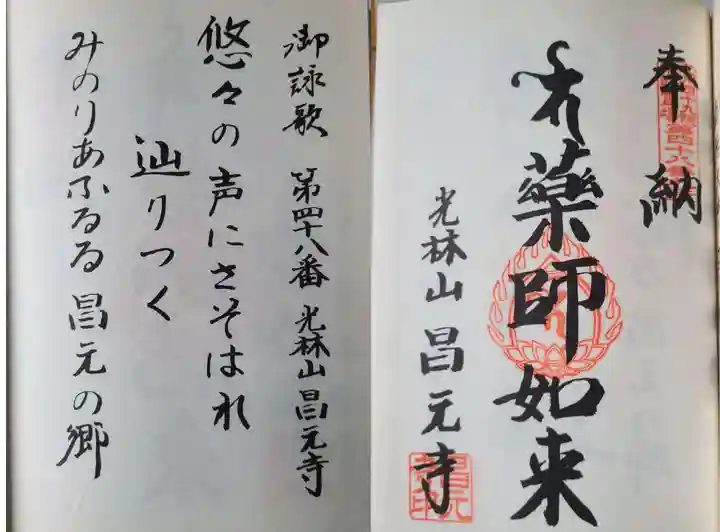 奉納
薬師如来
光林山 昌元寺
御詠歌 第四十八番 光林山昌元寺
悠々の声にさそはれ
辿りつく
みのりあふるる 昌元の郷